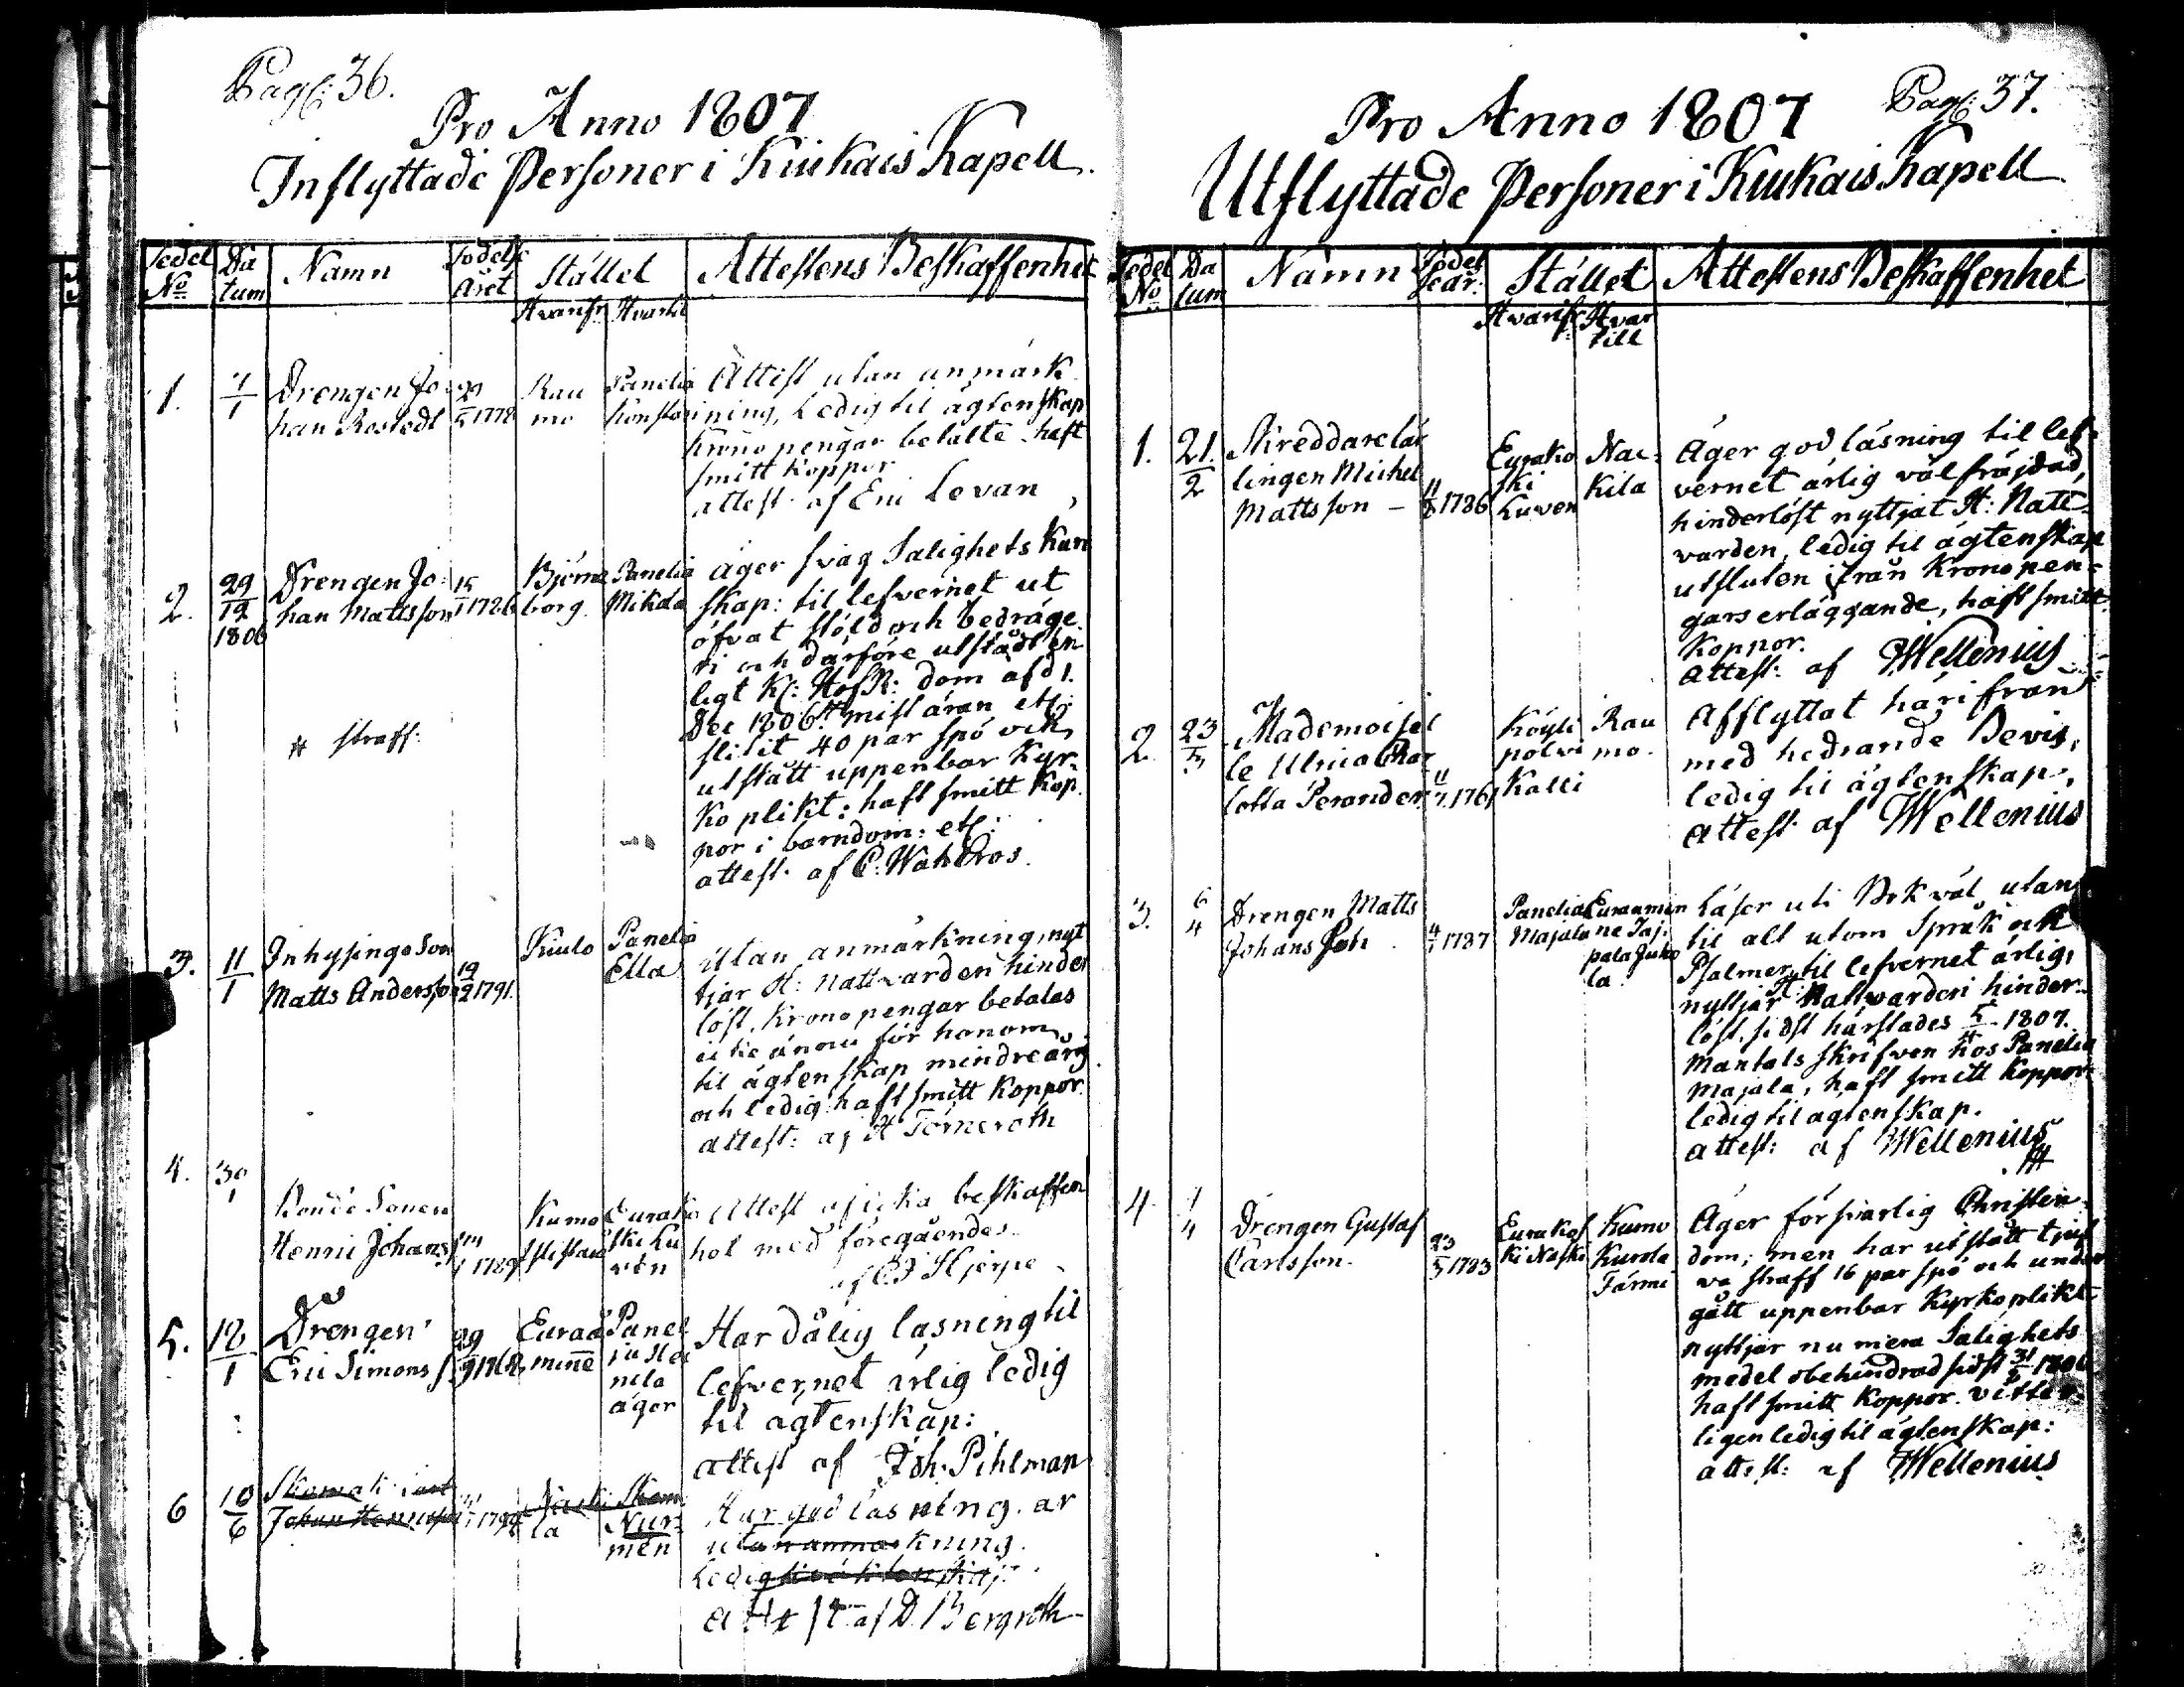 Pag: 36.
Pro Anno 1807
Inflyttade Personer i Kiukais Kapell
Sedel No
Da tum
Namn
Födelse Året
Stället
Attestens Beskaffenhet
Hvarifr.
Hvartil
1.
7/1
Drengen Jo
han Rostedt
1778
Rau
mo
Panelia
Attest utan anmärk
ning, Ledig til ägtenskap
Krono pengar betalte haft
smitt koppor
attest af Eric Levan
2.
29/12
1806
Drengen Jo
han Mattsson
15/1 1726
Björne
borg.
Panelia
Mikola
äger svag Salighets Kun
skap: til lefvernet ut
öfvat stöld och bedräge
ri och därföre utstådt en
ligt Kl: HofR: dom af d 1.
Dec 1806 # mist äran etc:
slitit 40 par spö och
utstått uppenbar Kyr
ko plikt: haft smitt Kop
por i barndom: etc:
attest. af C: Wahlroos.
# straff:
3.
11/1
Inhysinge Son
Matts Andersson
19/2 1791.
Kiulo
Panelia
Ella
Utan anmärkning, nyt
tjar H: Nattvarden hinder
löst, Krono pengar betalas
icke ännu för honom,
til ägtenskap mindreårig
och ledig: haft smitt koppor.
attest: af H Törneroth
4.
30/1
Bonde Sonen
Henric Johans
1789
Kumo
Eurako
ski Lu
ven
Attest af lika beskaffen
het med föregåendes
af Hjerpe
5.
18/1
Drengen
Eric Simons s.
29/9 1768
Euraå
minne
Panel
ia
nila
äger
Har dålig läsning til
lefvernet ärlig ledig
til ägtenskap:
attest af Joh. Pihlman
6
10/6
Johan Henricsson
la
Nur
men
Har god läsning. är
utan anmärkning.
Ledig til äktenskap
attest af D. Bergroth
Pag: 37.
Pro Anno 1807
Utflyttade Personer i Kiukais Kapell
Sedel No
Da tum
Namn
Födel se år:
Stället
Attestens Beskaffenhet
Hvarifr:
Hvar till
1.
21/2
Skreddare lär
lingen Michel
Mattsson –
1786
Eurako
ski
Luven
Nac=
kila
Äger god läsning til lef=
vernet ärlig välfräjdad,
hinderlöst nyttjat H: Natt
varden, ledig til ägtenskap
utsluten ifrån Kronopen=
gars erläggande, haft smitt
koppor.
attest: af Wellenius
2.
23/3
Mademoisel
le Ulrica Char
lotta Perander
11/7 1761
Köyli
polvi
Kalli
Rau
mo.
Afflyttat härifrån
med hedrande Bevis,
ledig til ägtenskap,
attest af Wellenius
3.
6/4
Drengen Matts
Johans Son
1787
Panelia
Majala
Euraamin
ne Taj
pala Juko
la
Läser uti Bok väl utan
til alt utom Språk och
Psalmer, til lefvernet ärlig,
nyttjar H: Nattvarden hinder
löst, sidst härstädes 5/4 1807.
Mantals skrifven hos Panelia
Majala, haft smitt koppor
ledig til ägtenskap.
attest: af Wellenius
4.
7/4
Drengen Gustaf
Carlsson.
23/3 1783
Eurakos
ki Naski
Kumo
Kurola
Färmi
Äger försvarlig Christen
dom; men har utstått tjuf
va straff 16 par spö och under
gått uppenbar Kyrkoplikt
nyttjar nu mera Salighets
medel obehindrad sidst 1806
haft smitt koppor. vitter
ligen ledig til ägtenskap:
attest: af Wellenius